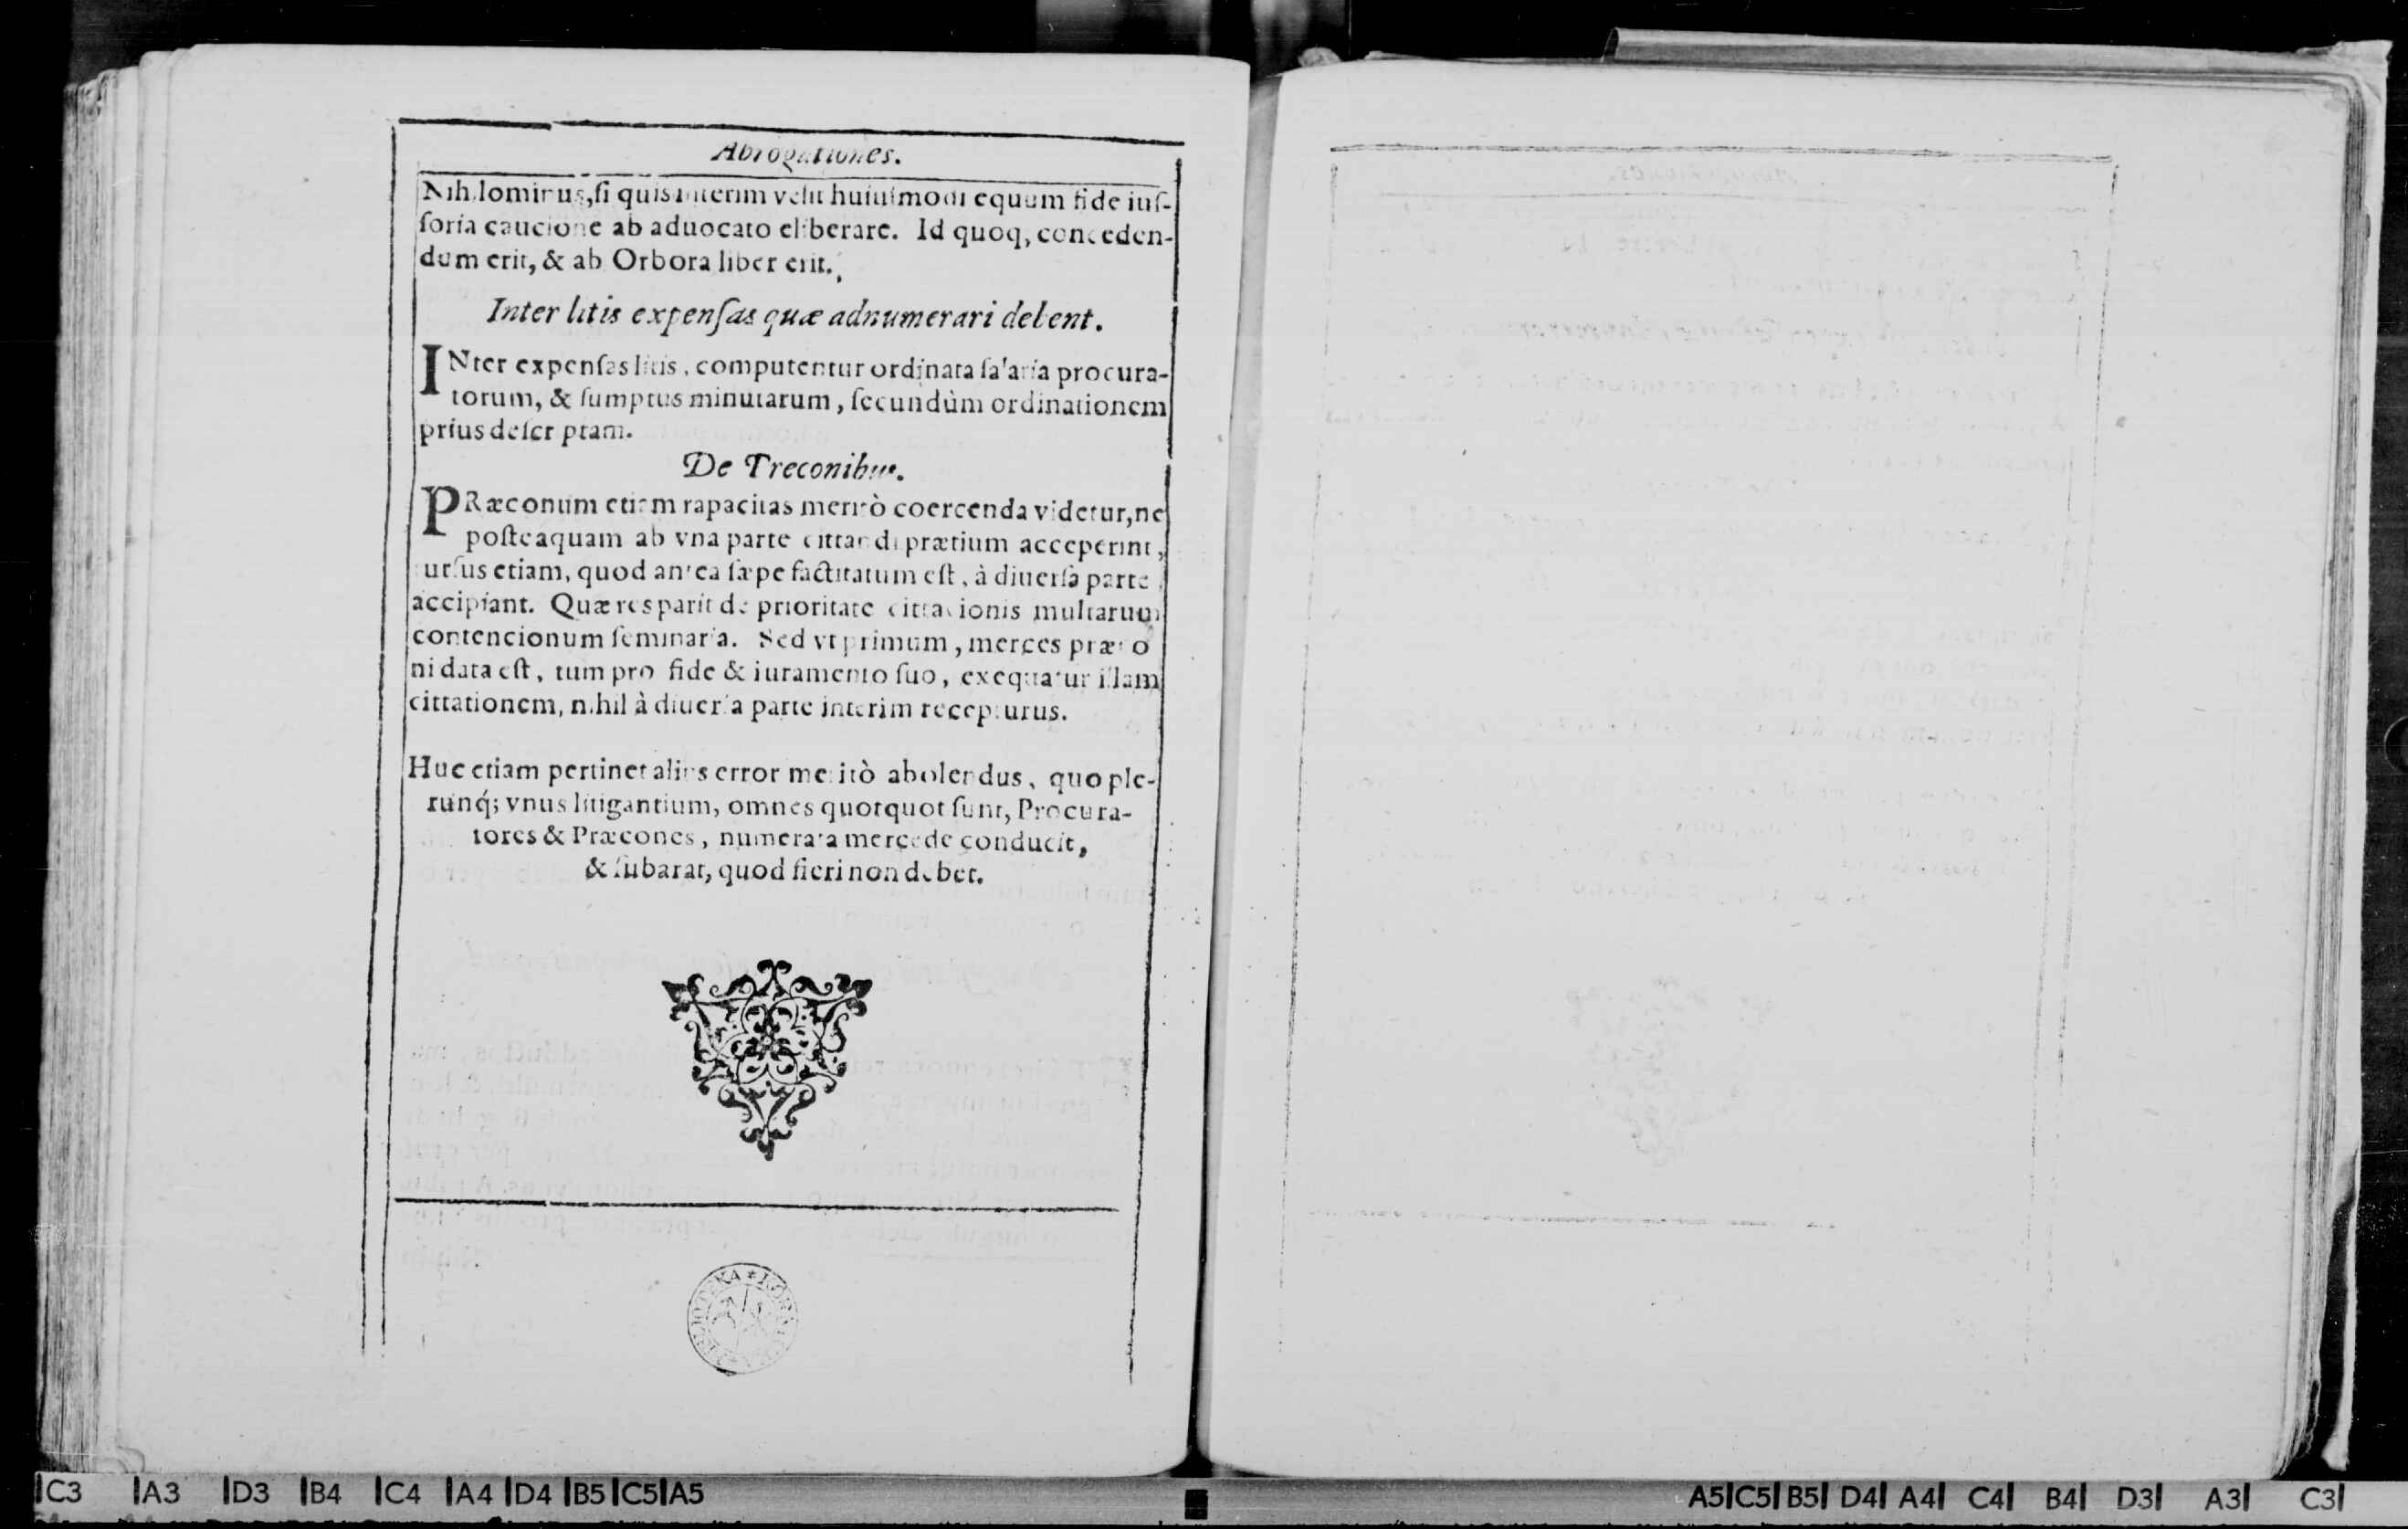 Abrogationes.
Nihilominus, ſi quis interim velit huiuſmodi equum fide iuſ-
ſoria caucione ab aduocato eliberare. Id quoq, conceden-
dum erit, & ab Orbora liber erit.
Inter litis expenſas quæ adnumerari debent.
INter expenſas litis, computentur ordinata ſalaria procura-
torum, & ſumptus minutarum, ſecundùm ordinationem
prius deſcr ptam.
De Preconibus.
PRæconum etiam rapacitas meritò coercenda videtur, ne
poſteaquam ab vna parte cittandi prætium acceperint,
urſus etiam, quod antea ſæpe factitatum eſt, à diuerſa parte
accipiant. Quæ res parit de prioritate cittacionis multarum
contencionum ſeminaria. Sed vt primum, merces præco
ni data eſt, tum pro fide & iuramento ſuo, exequatur illam
cittationem, nihil à diuerſa parte interim recepturus.
Huc etiam pertinet alius error meritò abolendus, quo ple-
runq́; vnus litigantium, omnes quotquot ſunt, Procura-
tores & Præcones, numerata mercede conducit,
& ſubarat, quod fieri non debet.
C3 A3 D3 B4 C4 A4 D4 B5 C5 A5
A5 C5 B5 D4 A4 C4 B4 D3 A3 C3